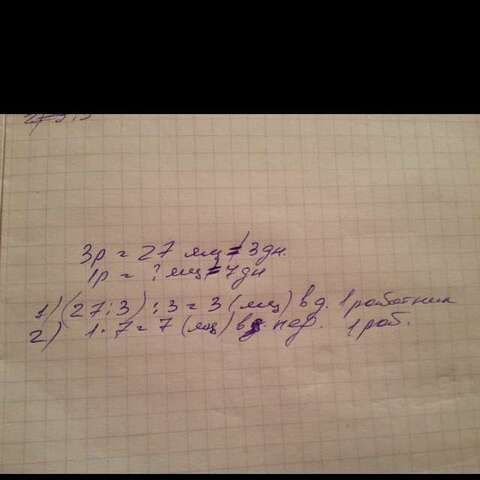 3р = 27 ящ = 3 дн.
1р = ? ящ = 7 дн
1) (27:3):3 = 3 (ящ) в д. 1 работник
2) 1·7 = 7 (ящ) в нед. 1 раб.